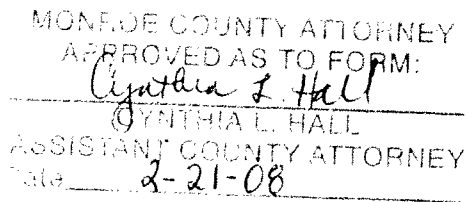 MONROE COUNTY ATTORNEY
APPROVED AS TO FORM:
Cynthia L. Hall
CYNTHIA L. HALL
ASSISTANT COUNTY ATTORNEY
Date 2-21-08